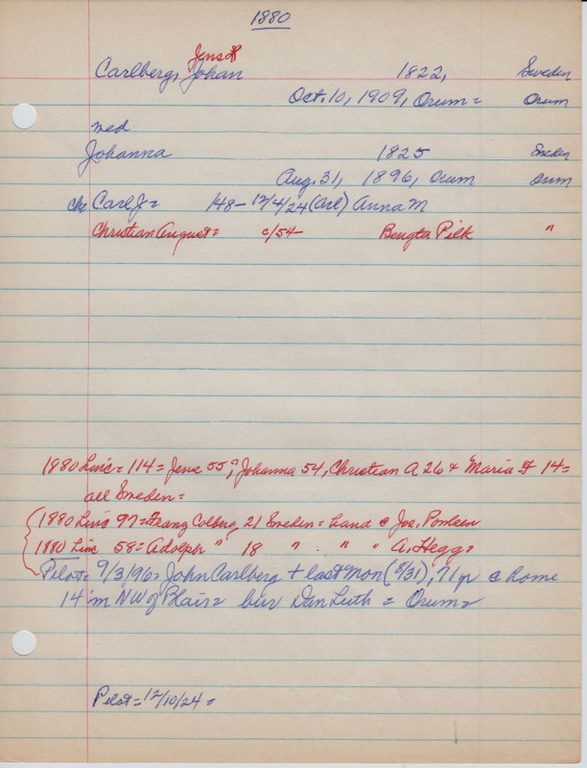 1880
Jens
Carlberg, Johan 1822, Sweden
Oct. 10, 1909, Orum = Orum
med
Johanna 1825 Sweden
Aug. 31, 1896, Orum Orum
ch Carl J = 148 - 12/4/24 (Arl) Anna M
Christian August = c/54 - Bengta Pilk "
1880 Linc = 114 = Jens 55, ", Johanna 54, Christian A 26 + "Maria F 14 =
all Sweden =
1880 Linc 97 = Franz Colberg, 21 Sweden = hand c Jos. Poulsen
1880 Linc 58 = Adolph " 18 " " " A. Hegg =
Pilot = 9/3/96 = John Carlberg + last Mon (8/31), 71 yr c home
14 m NW of Blair = bur Dan Luth = Orum =
Pilot = 12/10/24 =